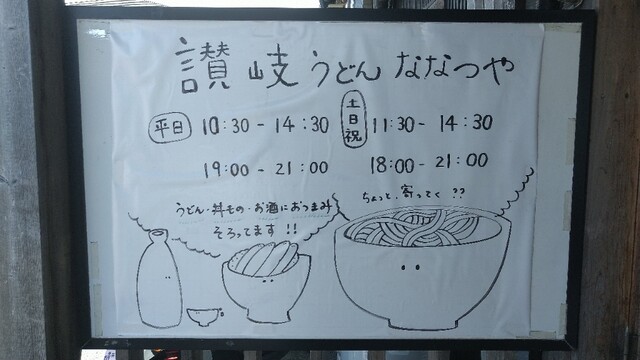 讃岐うどん ななつや
平日 10:30 - 14:30 土日祝 11:30 - 14:30
19:00 - 21:00 18:00 - 21:00
うどん・丼もの・お酒におつまみ
そろってます!!
ちょっと、寄ってく??